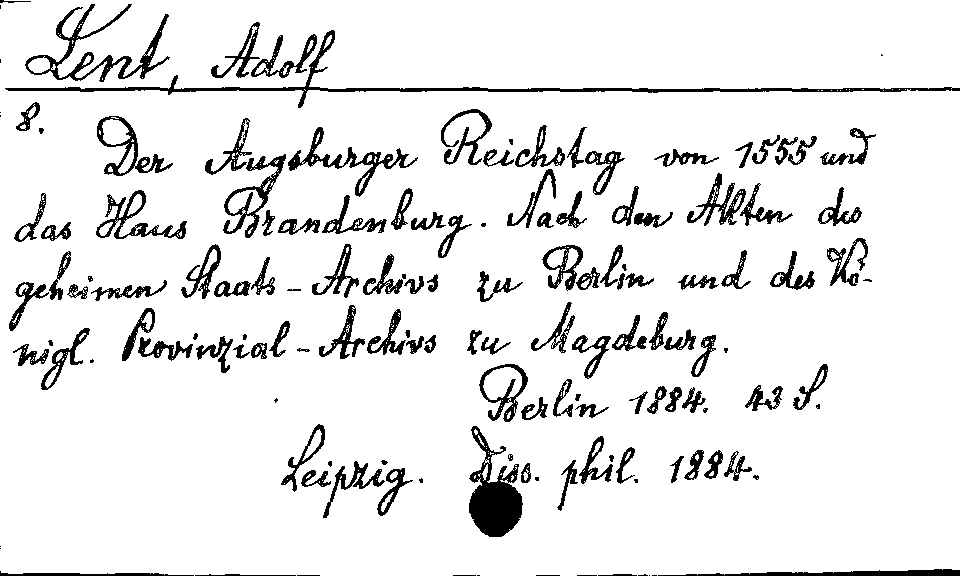 Lent, Adolf
8.
Der Augsburger Reichstag von 1555 und
das Haus Brandenburg. Nach den Akten des
geheimen Staats-Archivs zu Berlin und des Kö-
nigl. Provinzial-Archivs zu Magdeburg.
Berlin 1884. 43 S.
Leipzig. Diss. phil. 1884.